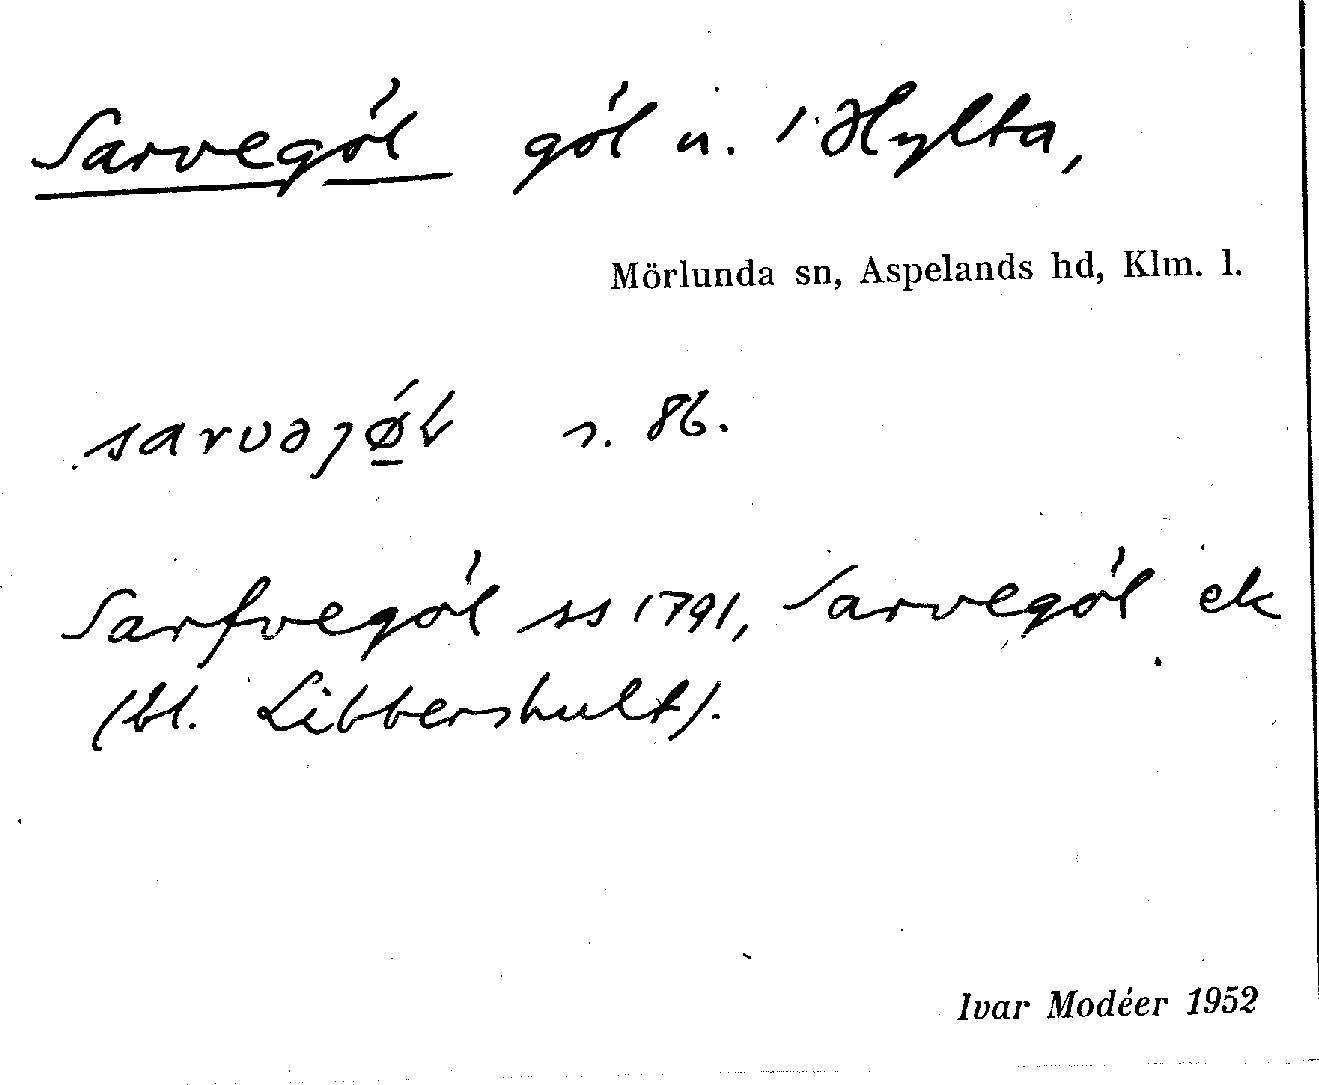 Sarvegöl göl u. 1 Hylta,
Mörlunda sn, Aspelands hd, Klm. l.
s. 86.
Sarfvegöl ss 1791, Sarvegöl ek
(bl. Libbershult).
Ivar Modéer 1952